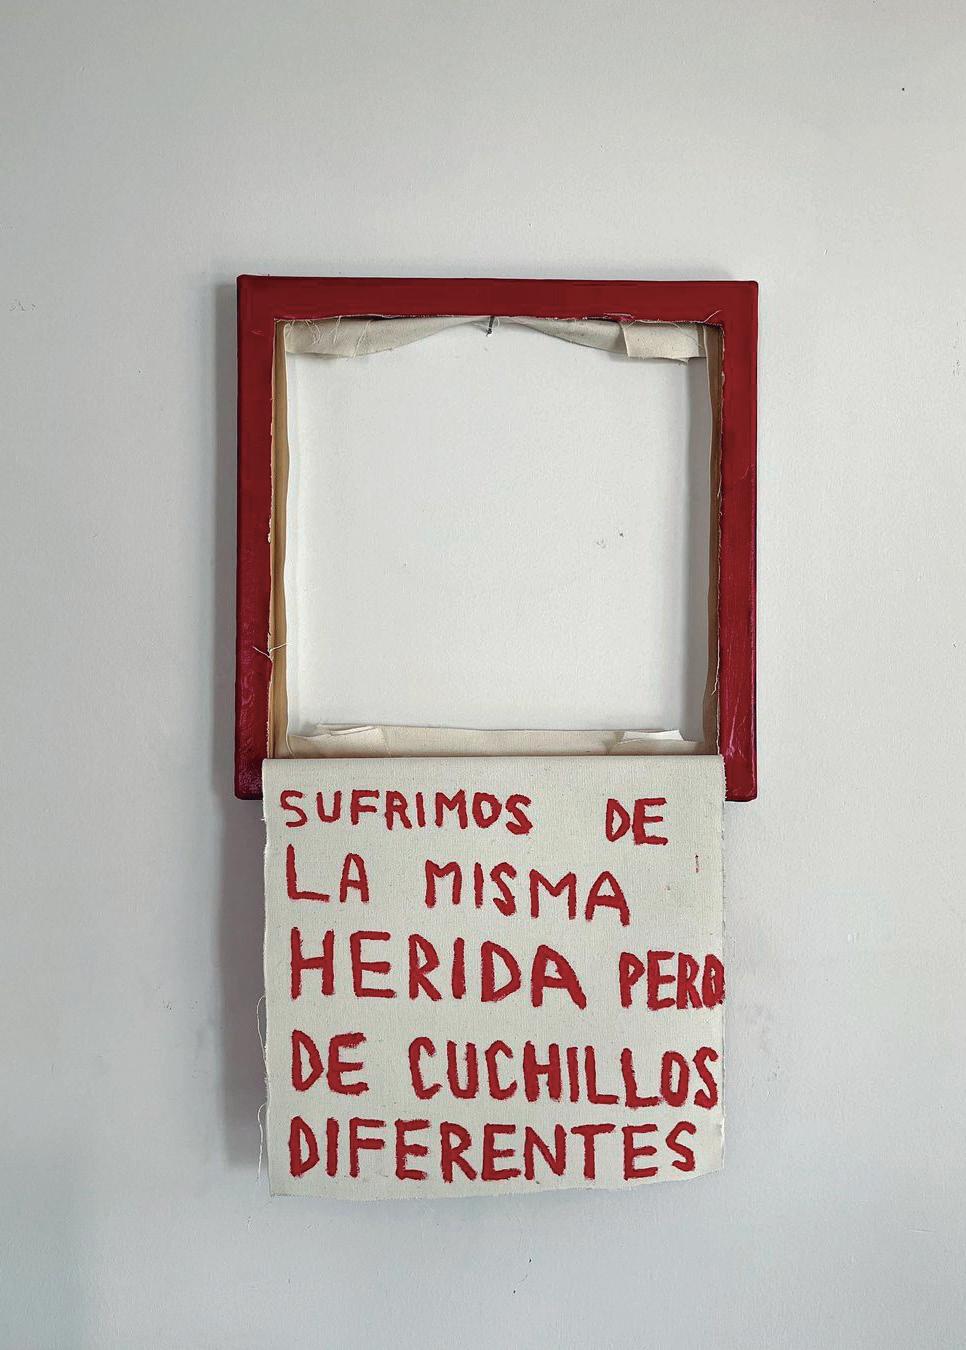 SUFRIMOS DE
LA MISMA
HERIDA PERO
DE CUCHILLOS
DIFERENTES